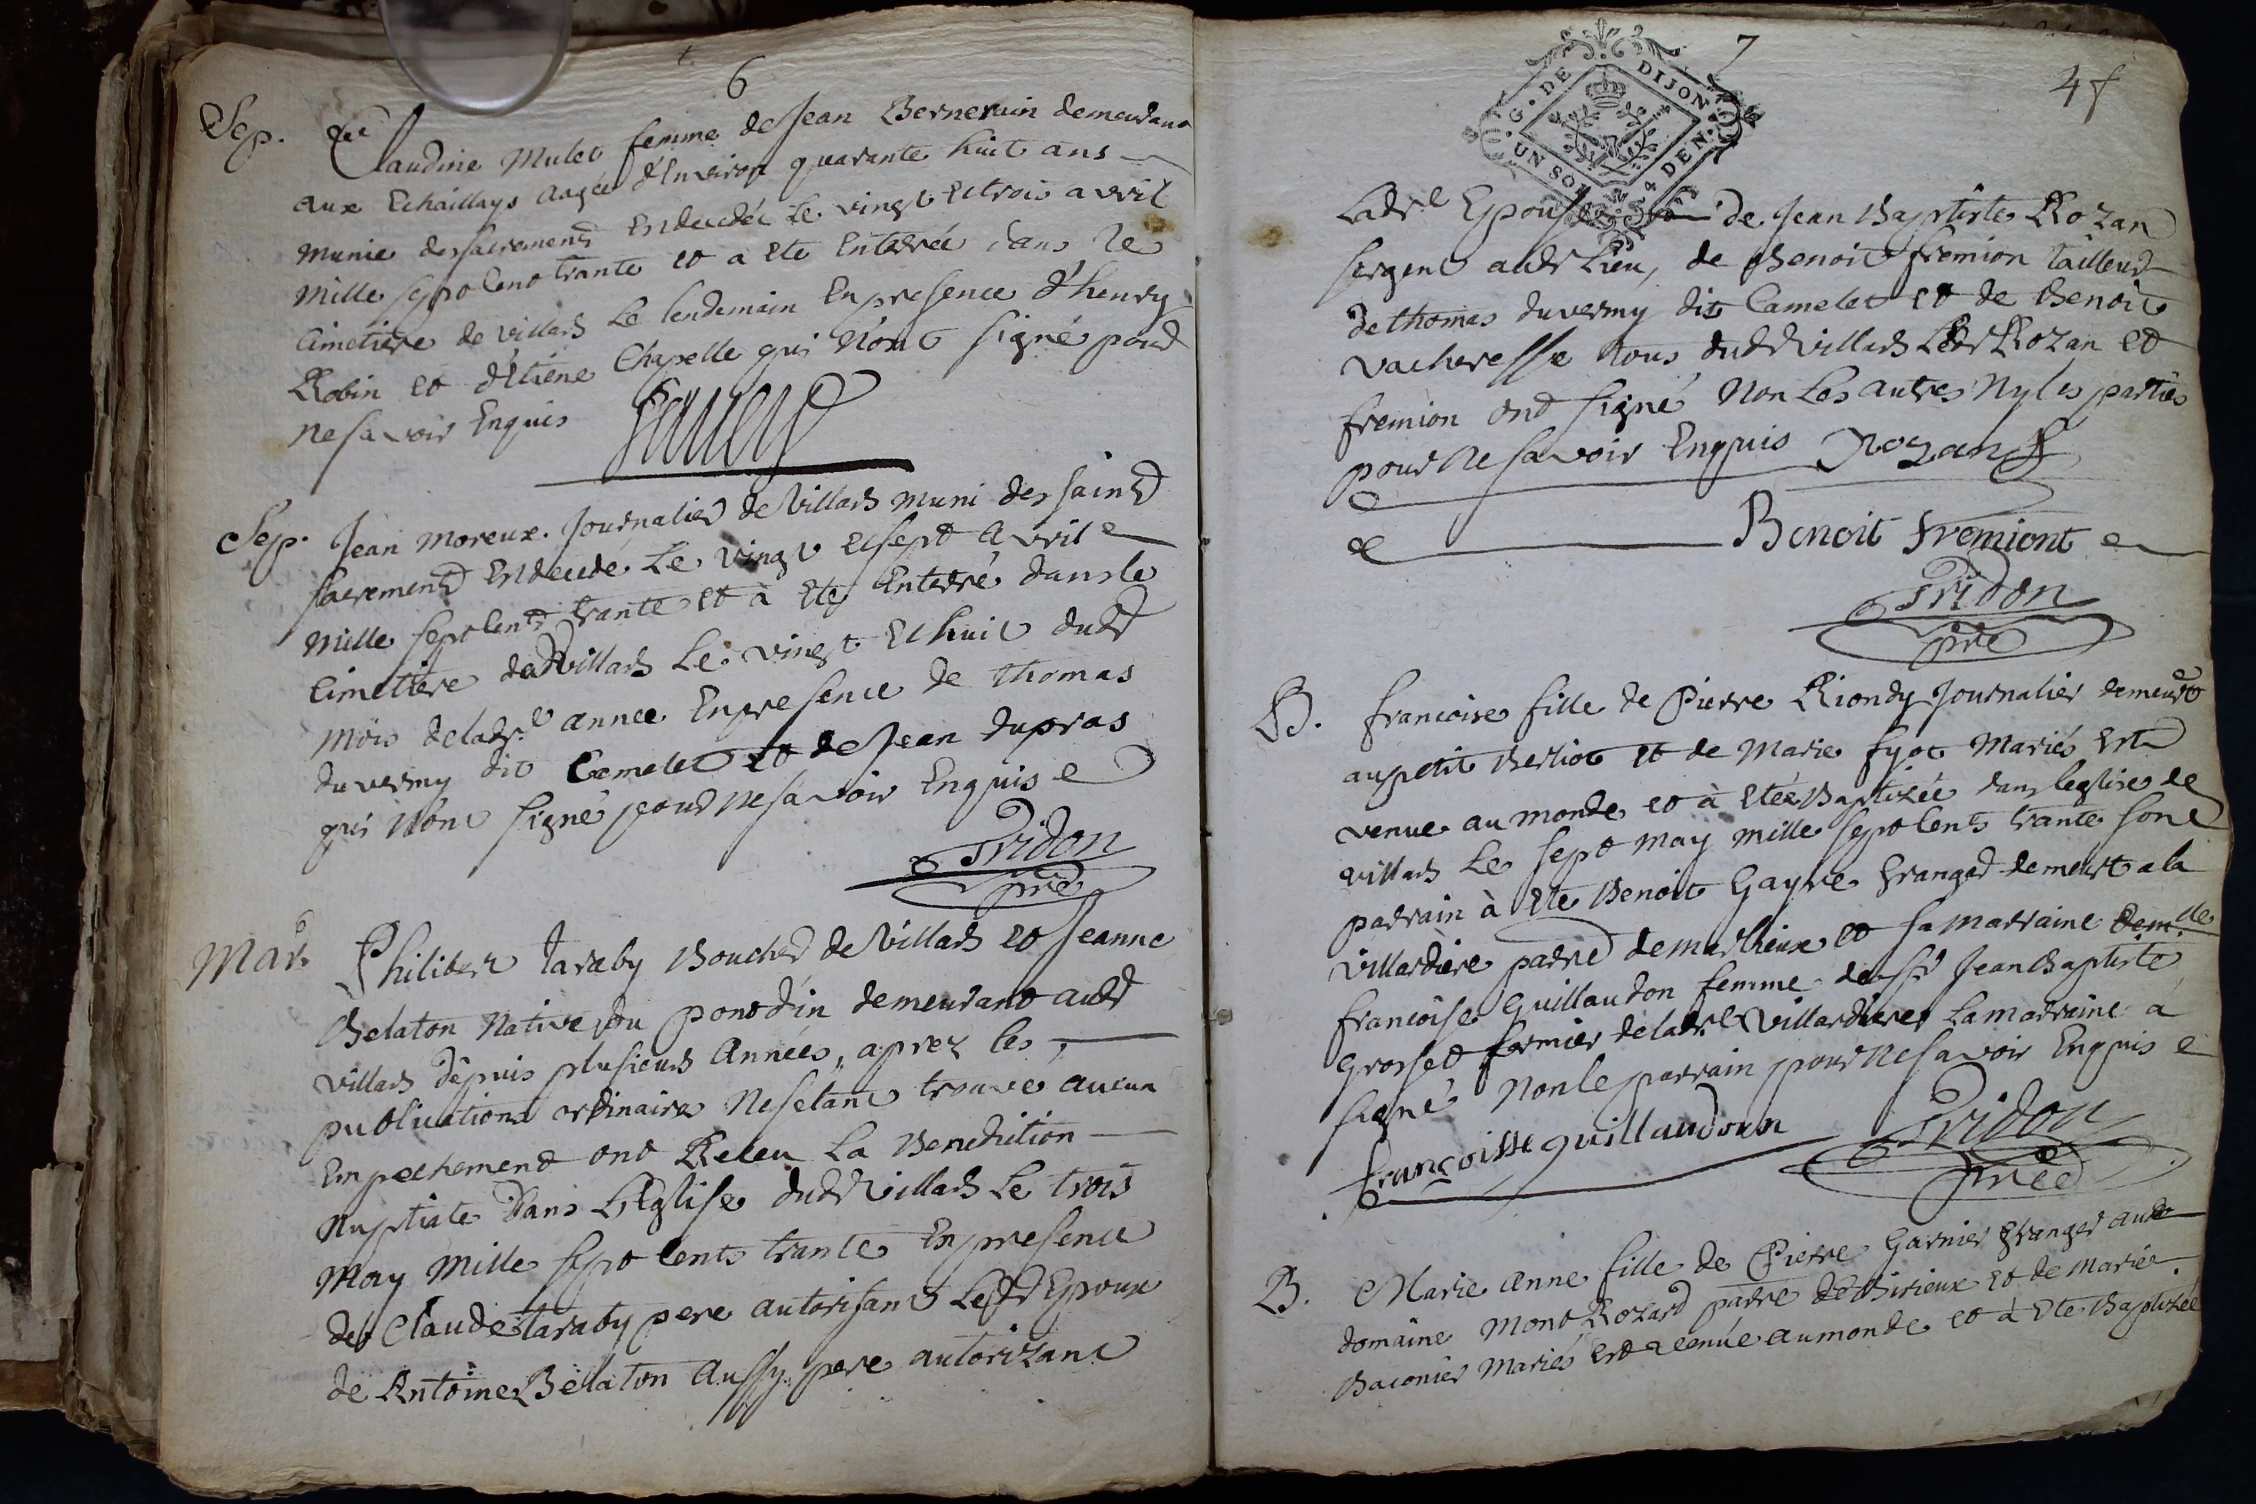 6
Sep. Claudine Mulet femme de Jean Berneruin demeurant
aux Echaillays aagée d'Environ quarante huit ans
munie des sacrements Est decedée Le vingt Et trois avril
mille sept cent trante et a ete Enterrée dans le
Cimetiere de villars Le lendemain En presence d'henry
Robin et d'Etiene Chapelle qui n'ont signé pour
ne savoir Enquis
Sep. Jean Moreux Journalier de Villars muni des saints
sacrements Est decedé Le vingt Et sept avril
mille sept cents trante et à ete Enterré dans le
Cimetiere dud Villars Le vingt Et huit dudt
mois de ladte année En presence de thomas
duvermy dit Camelet et de Jean dupras
qui n'ont signé pour ne savoir Enquis
Tridon
pre
Mar. Philibert taraby Boucher de Villars et Jeanne
Belaton Native du pont d'in demeurant audt
villars depuis plusieurs années, aprez les
publications ordinaires ne setant trouve aucun
Enpechement ont Receu La Benediction
Nuptiale dans L'Eglise dudt Villars Le trois
May Mille sept cents trante En presence
de Claude taraby pere autorisant Ledt Epoux
de Antoine Belaton aussy pere autorizant
7
G. DE DIJON
UN SOL 4 DEN.
4f
Ladte Epouse de Jean Baptiste Rozan
sergent audt Lieu, de Benoit fremion tailleur
de thomas duvermy dit Camelet et de Benoit
vacheresse tous dudt Villars Ledt Rozan et
fremion ont signé Non Les autres Ny les parties
pour ne savoir Enquis Rozan
Benoit fremiont
Tridon
pre
B. francoise fille de Pierre Riondy Journalier demeurt
au petit Berliot et de Marie fyot Mariés Est
venue au monde et à etée Baptizée dans leglise de
villars Le sept may mille sept cents trante son
parrain à ete Benoit Gayve Granger demeurt a la
Villardiere parre de marlieux et sa marraine demlle
francoise Guillaudon femme de sr Jean Baptiste
Grosset fermier de ladte Villardiere La marraine à
signé Non le parrain pour ne savoir Enquis
françoisse guillaudon
Tridon
pre
B. Marie Anne fille de Pierre Garnier Granger au
domaine Mont Rozard parre de Birieux et de Marie
Baconier Mariés Est venue au monde et à ete Baptizée